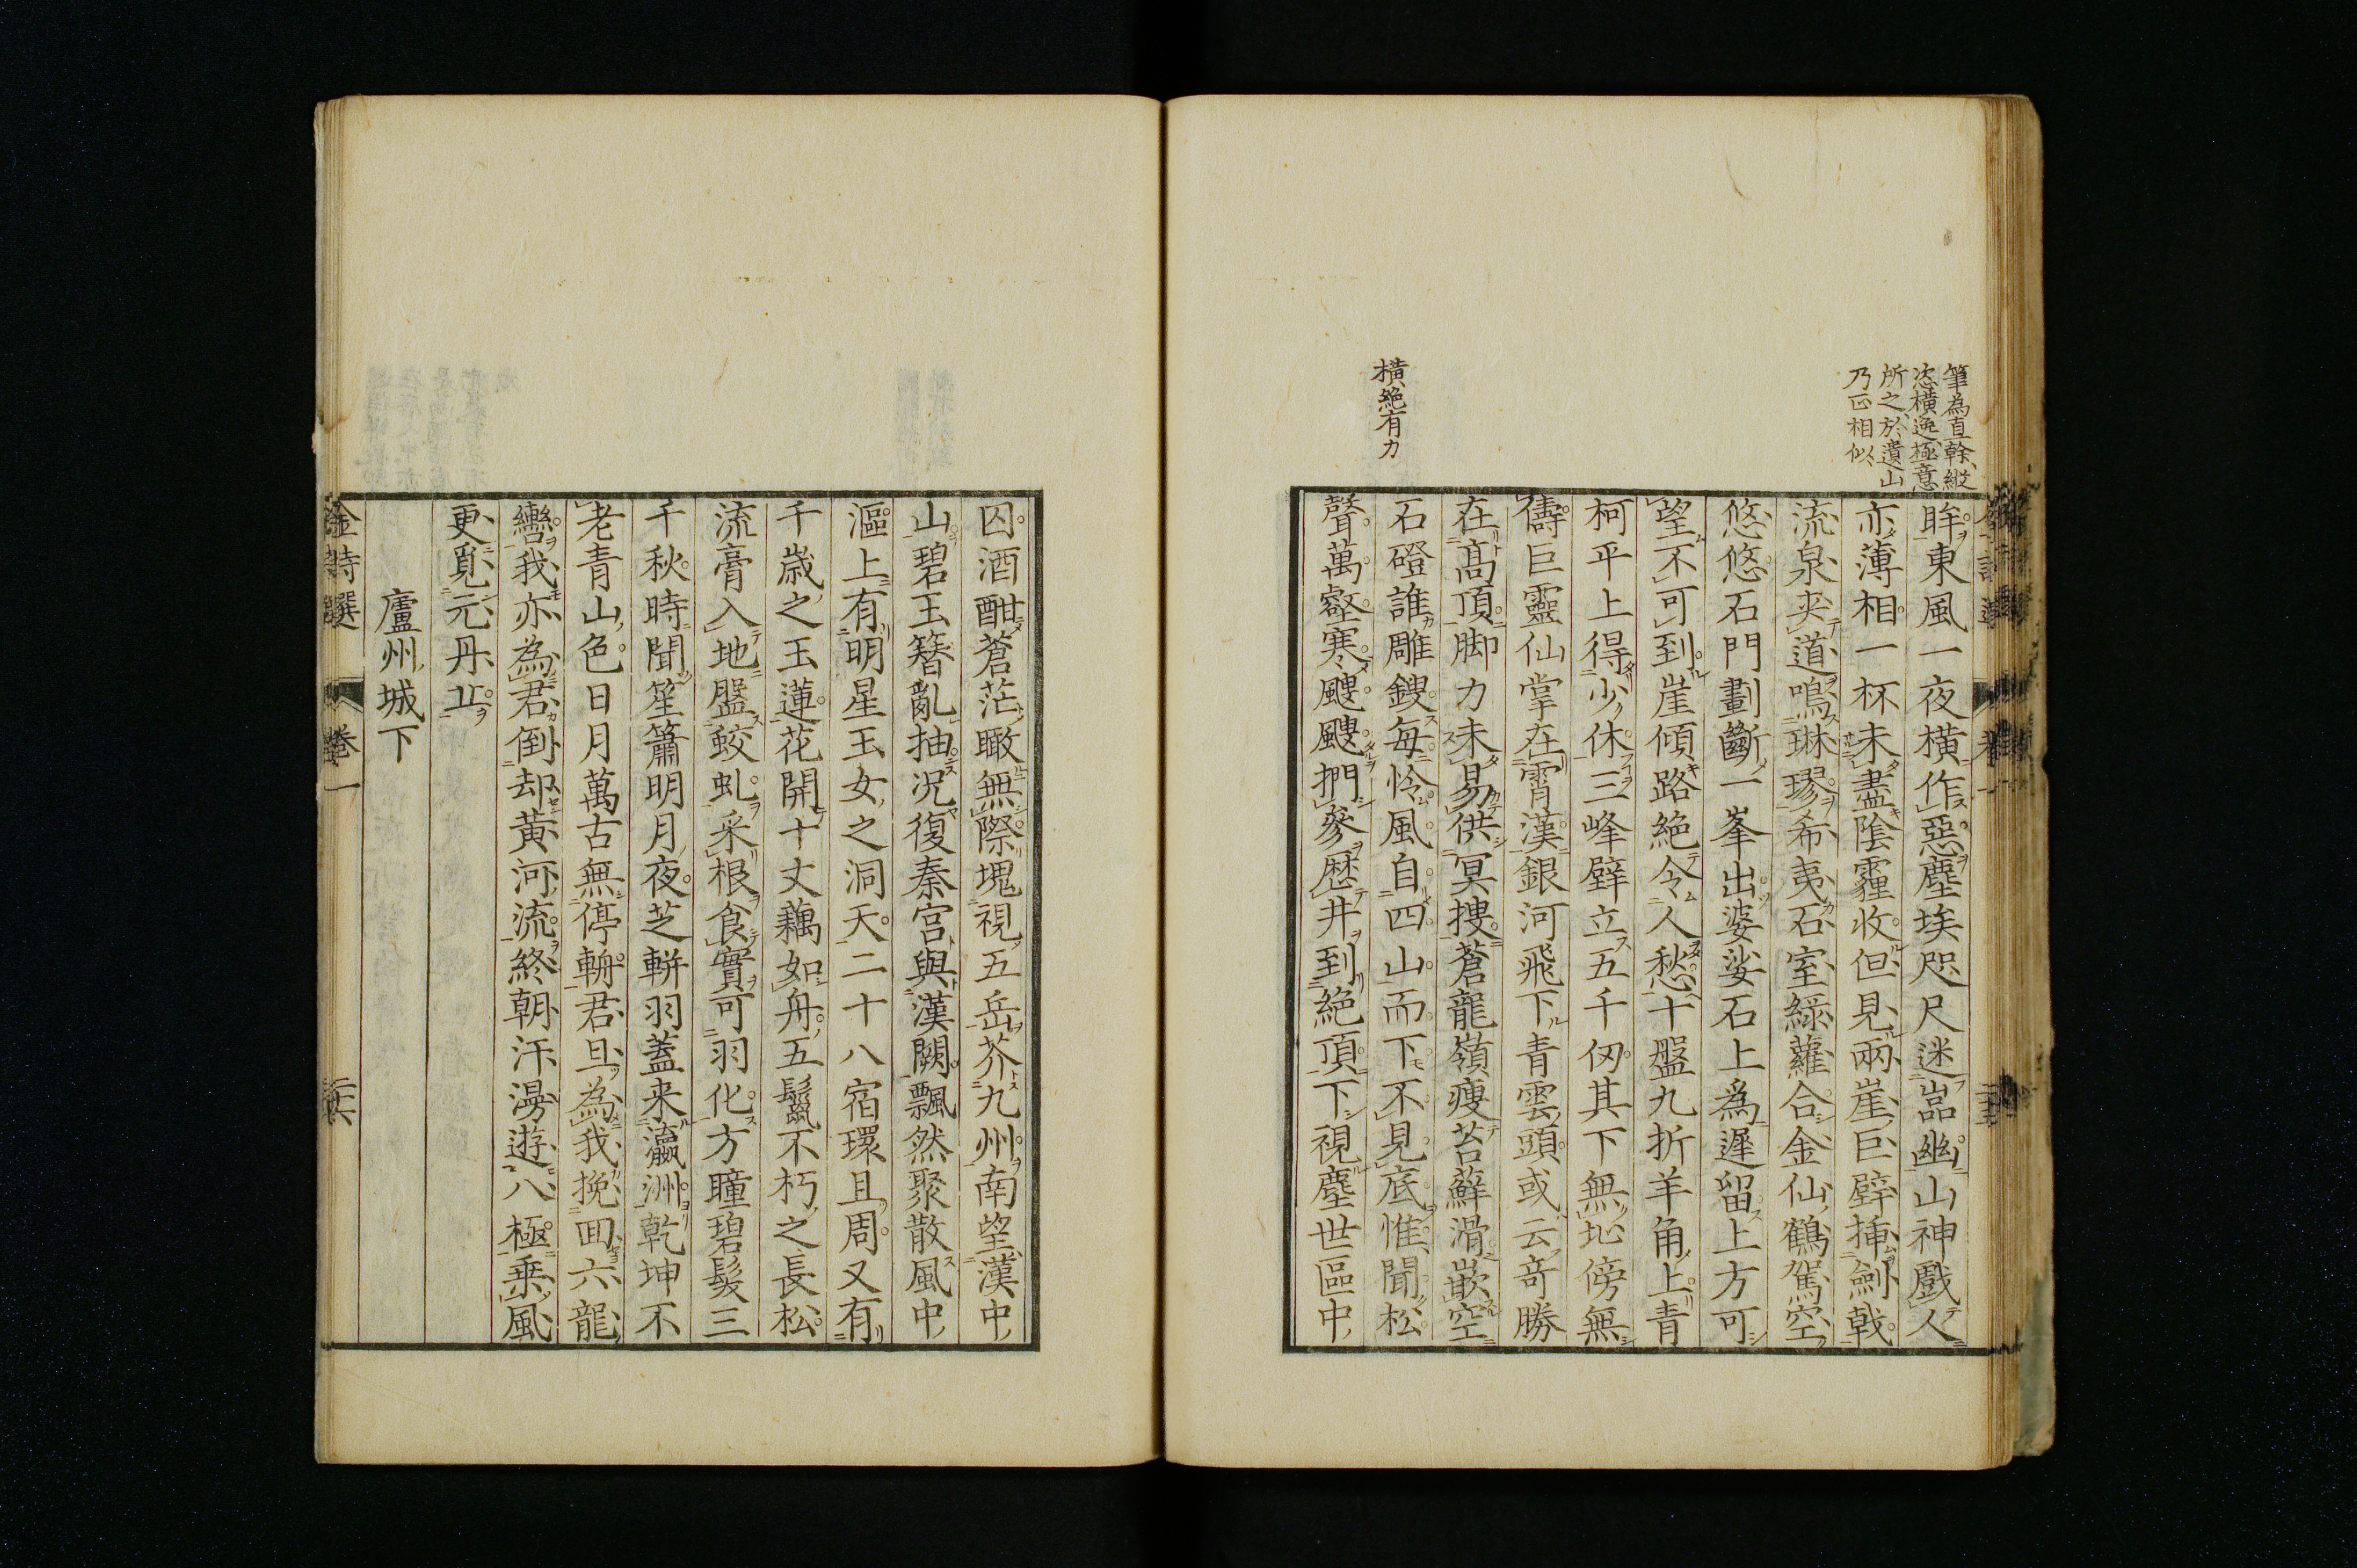 筆為直幹、縱
恣橫逸極意
所之、於遺山
乃正相似、
橫絶有力
眸東風一夜橫作惡塵埃咫尺迷嵓幽山神戲人
亦薄相一杯未盡陰霾收但見兩崖巨壁揷劍戟
流泉夾道鳴琳璆希夷石室綠蘿合金仙鶴駕空
悠悠石門劃斷一峯出婆娑石上爲遲留上方可
望不可到崖傾路絶令人愁十盤九折羊角上青
柯平上得少休三峰壁立五千仞其下無地傍無
儔巨靈仙掌在霄漢銀河飛下青雲頭或云奇勝
在髙頂脚力未易供冥捜蒼龍嶺瘦苔蘚滑嵌空
石磴誰雕鎪每怜風自四山而下不見底惟聞松
聲萬壑寒颼颼捫參歷井到絶頂下視塵世區中
囚酒酣蒼茫瞰無際塊視五岳芥九州南望漢中
山碧玉簪亂抽况復秦宫與漢闕飄然聚散風中
漚上有明星玉女之洞天二十八宿環且周又有
千歲之玉蓮花開十丈藕如舟五鬣不朽之長松
流膏入地盤蛟虬采根食實可羽化方瞳碧髮三
千秋時聞笙簫明月夜芝軿羽蓋来瀛洲乾坤不
老青山色日月萬古無停輈君且為我挽囬六龍
轡我亦為君倒却黄河流終朝汗漫遊八極乗風
更覓元丹丘
廬州城下
金詩選 卷一 二六